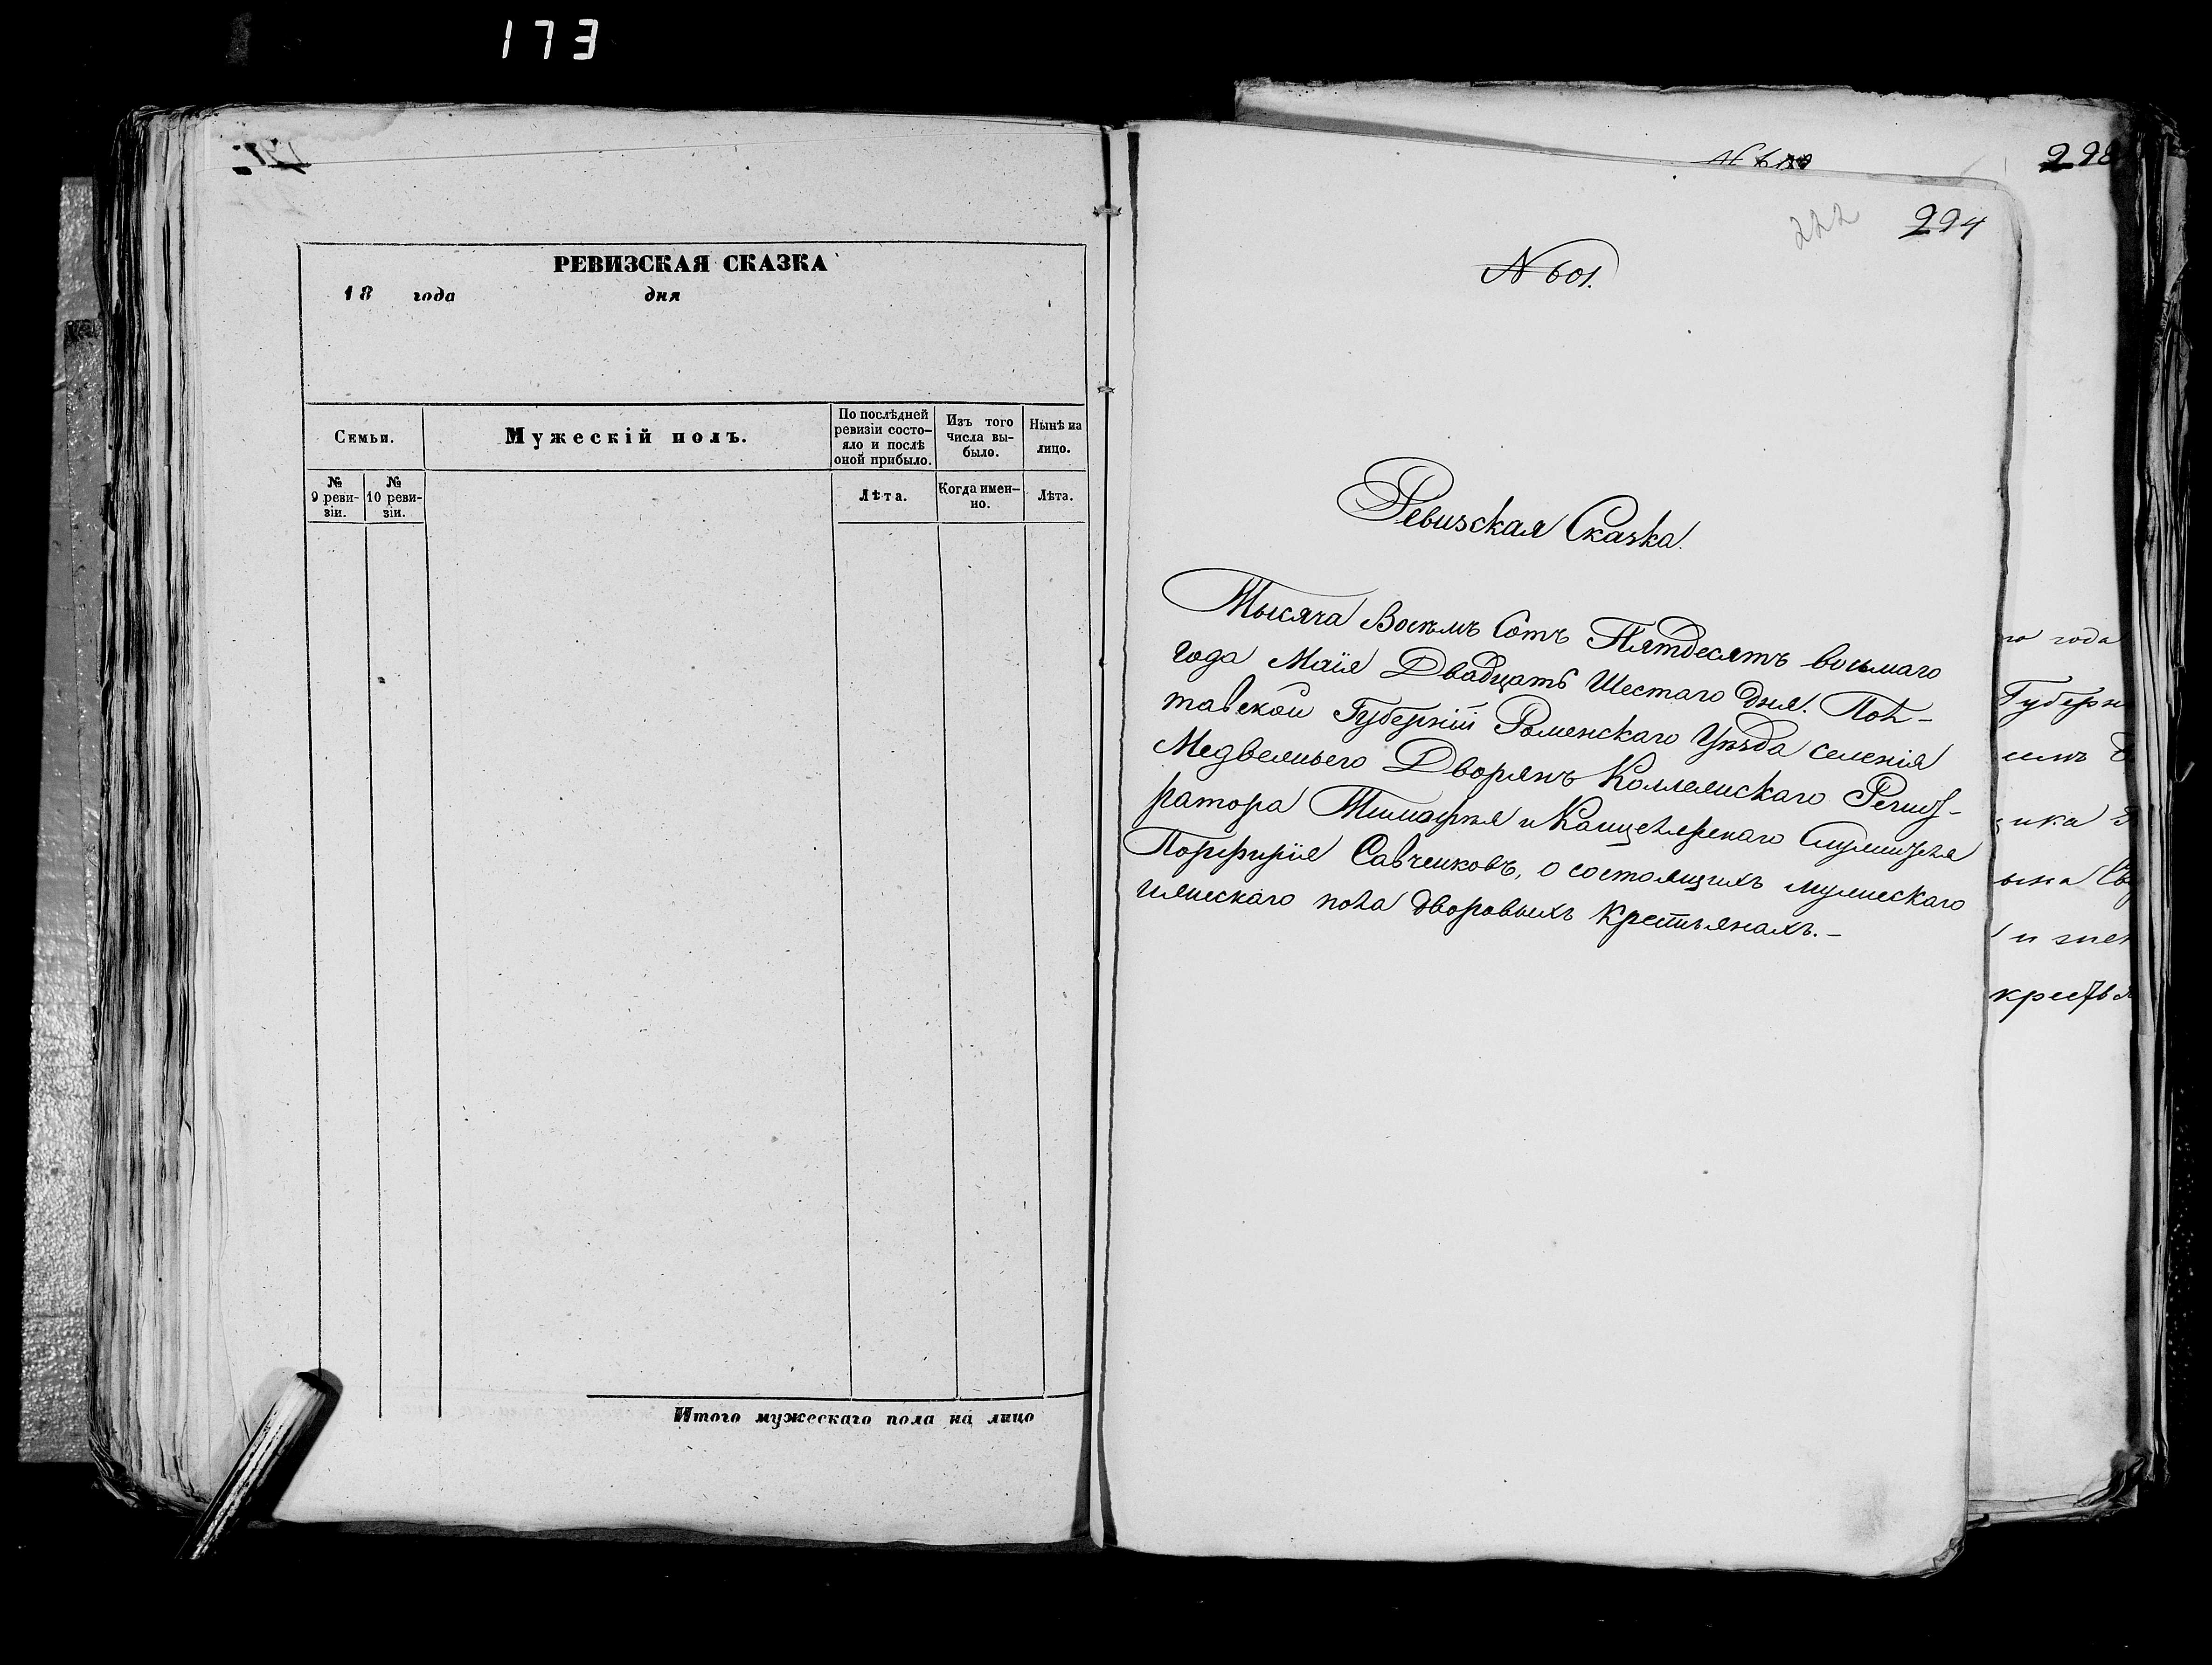 173
РЕВИЗСКАЯ СКАЗКА
18 года дня
Семьи.
Мужескій полъ.
По послѣдней ревизіи состо-
яло и послѣ
оной прибыло.
Изъ того
числа вы-
было.
Нынѣ на
лицо.
№
9 реви-
зіи.
№
10 реви-
зіи.
Лѣта.
Когда имен-
но.
Лѣта.
Итого мужескаго пола на лицо
298
222 294
N 601.
Ревизская Сказка.
Тысяча Восемъ Сотъ Пятдесятъ восьмаго
года Маія Двадцать Шестаго Дня. Пол-
тавской Губерніи Роменскаго Уѣзда селенія
Медвежьего Дворянъ Коллежскаго Регист-
ратора Тимофея и Канцелярскаго Служителя
Порфирія Савченковъ, о состоящихъ мужескаго
и женскаго пола дворовыхъ крестьянахъ.-
го года
Губерн
ика
и
крестья